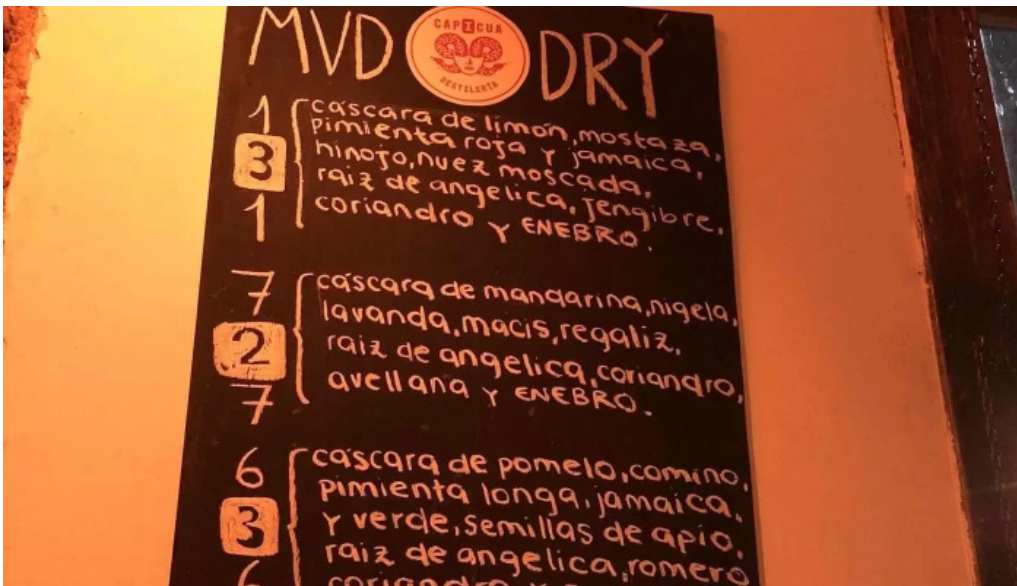 MVD CAPICUA DESTILERÍA DRY
1 cáscara de limón, mostaza,
pimienta roja y jamaica,
3 hinojo, nuez moscada,
raiz de angelica, jengibre,
1 coriandro y ENEBRO.
7 cáscara de mandarina, nigela,
lavanda, macis, regaliz,
2 raiz de angelica, coriandro,
7 avellana y ENEBRO.
6 cáscara de pomelo, comino,
pimienta longa, jamaica,
3 y verde, semillas de apio,
raiz de angelica, romero
6 coriandro y